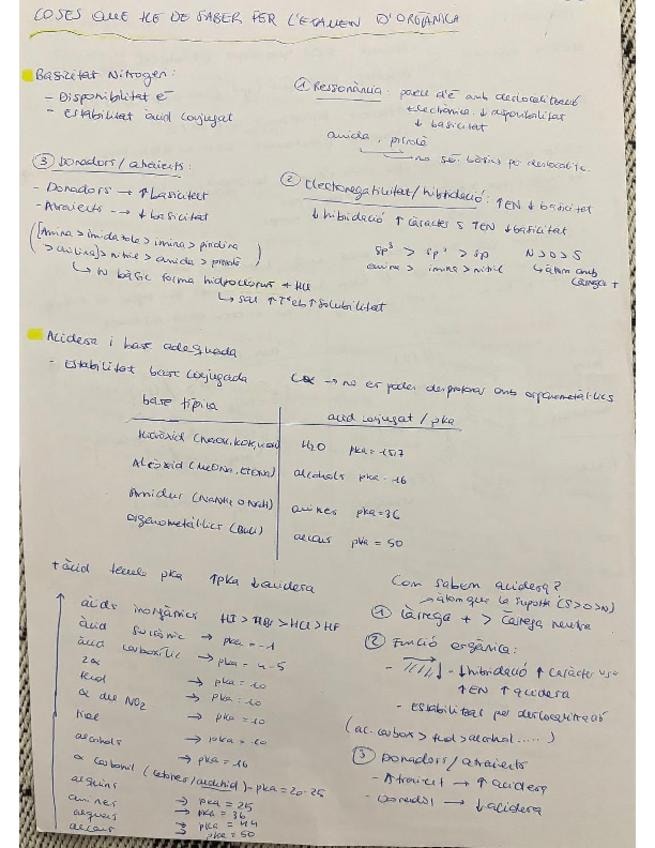 COSES QUE HE DE SABER PER L'EXAMEN D'ORGÀNICA
Basicitat Nitrogen:
- Disponibilitat e-
- estabilitat àcid conjugat
① Ressonància: parell d'e- amb deslocalització
electrònica ↓ disponibilitat
↓ basicitat
amida, pirrole
→ no són bàsics per deslocalitz.
② Electronegativitat/hibridació: ↑EN ↓basicitat
↓hibridació ↑ caràcter s ↑EN ↓basicitat
sp³ > sp² > sp N > O > S
amina > imina > nitril ↳ àtom amb
càrrega +
③ Donadors/atraients:
- Donadors → ↑basicitat
- Atraients --→ ↓ basicitat
([Amina > imidazole > imina > piridina
> anilina] > nitril > amida > pirrole)
↳ N bàsic forma hidroclorurs + HCl
↳ sal ↑Tªeb ↑solubilitat
Acidesa i base adequada
- Estabilitat base conjugada
→ no es poden desprotonar amb organometàl·lics
base típica àcid conjugat / pka
Hidròxid (NaOH, KOH, ) H2O pka = 15,7
Alcòxid (MeONa, EtONa) alcohols pka = 16
Amidur (NaNH2 o ) amines pka = 36
Organometàl·lics (BuLi) alcans pka = 50
+ àcid pka ↑pka ↓acidesa
àcids inorgànics HI > HBr > HCl > HF
àcid sulfònic → pka = -1
àcid carboxílic → pka = 4-5
2α → pka = 10
fenol → pka = 10
α de NO2 → pka = 10
tiol → pka = 10
alcohols → pka = 16
α carbonil (cetones/aldehid) - pka = 20-25
alquins → pka = 25
amines → pka = 36
alquens → pka = 44
alcans → pka = 50
Com sabem acidesa?
→ àtom que la suporta (S>O>N)
① Càrrega + > Càrrega neutra
② Funció orgànica:
- ↓hibridació ↑ caràcter
↑EN ↑ acidesa
- Estabilitzat per deslocalització
(ac. carbox > fenol > alcohol.....)
③ Donadors/atraients
- Atraient → ↑ acidesa
- Donador → ↓acidesa